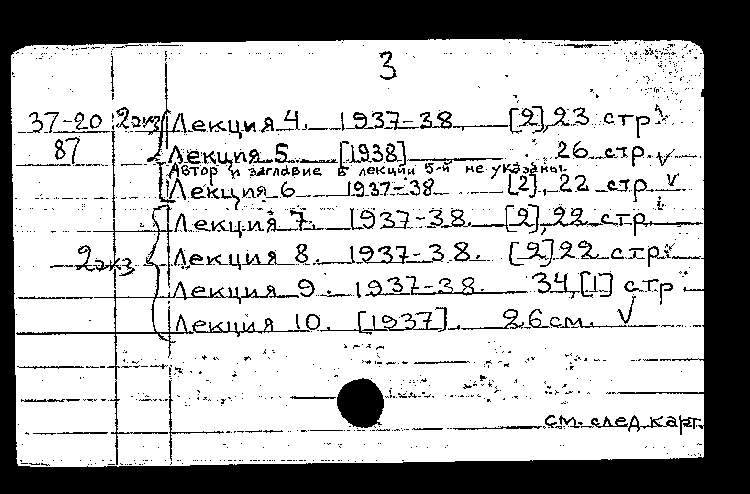 3
37-20 2экз Лекция 4. 1937-38. [2], 23 стр.
87 Лекция 5 [1938] 26 стр.
Автор и заглавие в лекции 5-й не указаны.
Лекция 6 1937-38 [2], 22 стр
Лекция 7. 1937-38. [2], 22 стр.
2экз Лекция 8. 1937-38. [2] 22 стр.
Лекция 9. 1937-38. 34, [1] стр
Лекция 10. [1937]. 26 см.
см. след. карт.